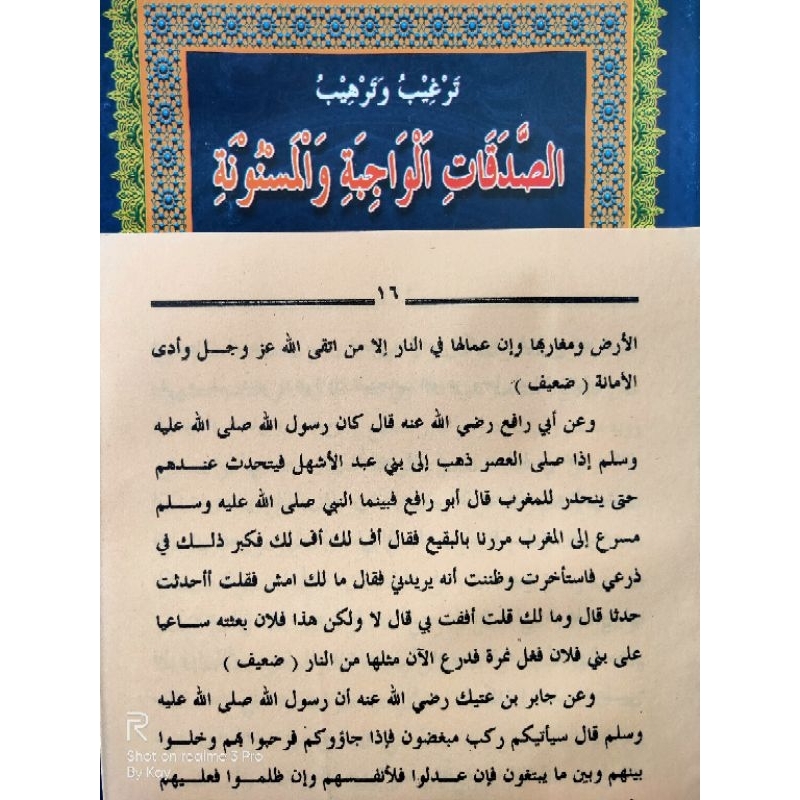 تَرْغِيْبُ وَتَرْهِيْبُ
الصَّدَقَاتِ الْوَاجِبَةِ وَالْمَسْنُوْنَةِ
١٦
الأرض ومغاربها وإن عمالها في النار إلا من اتقى الله عز وجل وأدى
الأمانة ( ضعيف )
وعن أبي رافع رضي الله عنه قال كان رسول الله صلى الله عليه
وسلم إذا صلى العصر ذهب إلى بني عبد الأشهل فيتحدث عندهم
حتى ينحدر للمغرب قال أبو رافع فبينما النبي صلى الله عليه وسلم
مسرع إلى المغرب مررنا بالبقيع فقال أف لك أف لك فكبر ذلك في
ذرعي فاستأخرت وظننت أنه يريدني فقال ما لك امش فقلت أأحدثت
حدثا قال وما لك قلت أففت بي قال لا ولكن هذا فلان بعثته ساعيا
على بني فلان فغل نمرة فدرع الآن مثلها من النار ( ضعيف )
وعن جابر بن عتيك رضي الله عنه أن رسول الله صلى الله عليه
وسلم قال سيأتيكم ركب مبغضون فإذا جاؤوكم فرحبوا بهم وخلوا
بينهم وبين ما يبتغون فإن عدلوا فلأنفسهم وإن ظلموا فعليهم
R
Shot on realme 3 Pro
By Kay